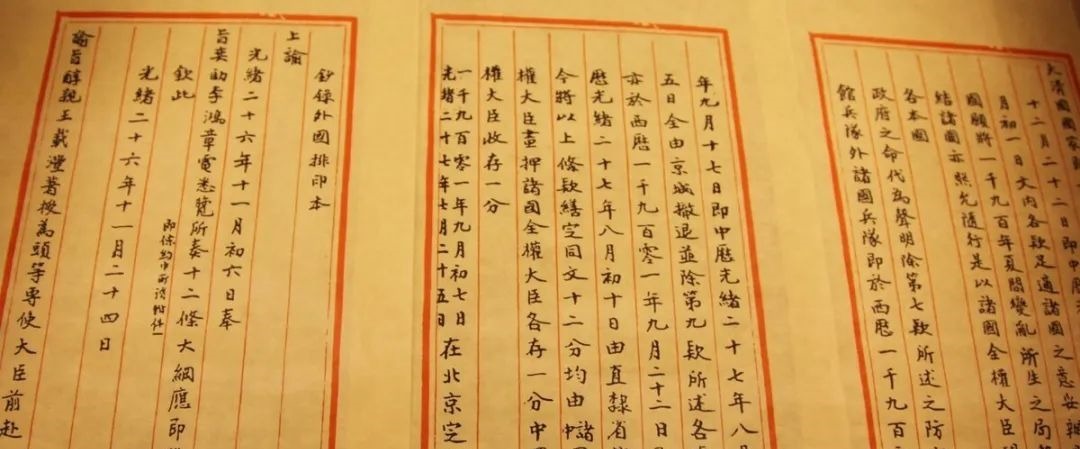 大清國國家
十二月二十二日即中
月初一日大內各款足適諸國之意妥辦
國願將一千九百年夏間變亂所生之局
結諸國亦照允隨行是以諸國全權大臣
各本國
政府之命代為聲明除第七款所述之防
館兵隊外諸國兵隊即於西歷一千九百
年九月十七日即中歷光緒二十七年八
五日全由京城撤退並除第九款所述各
亦於西歷一千九百零一年九月二十二日
歷光緒二十七年八月初十日由直隸省
今將以上條款繕定同文十二分均由諸
權大臣畫押諸國全權大臣各存一分中
權大臣收存一分
一千九百零一年九月初七日
光緒二十七年七月二十五日
在北京定
鈔錄外國排印本
上諭
光緒二十六年十一月初六日奉
旨奕劻李鴻章電悉覽所奏十二條大綱應即
欽此
即條約中所謂附件一
光緒二十六年十一月二十四日
諭旨醇親王載灃著授為頭等專使大臣前赴